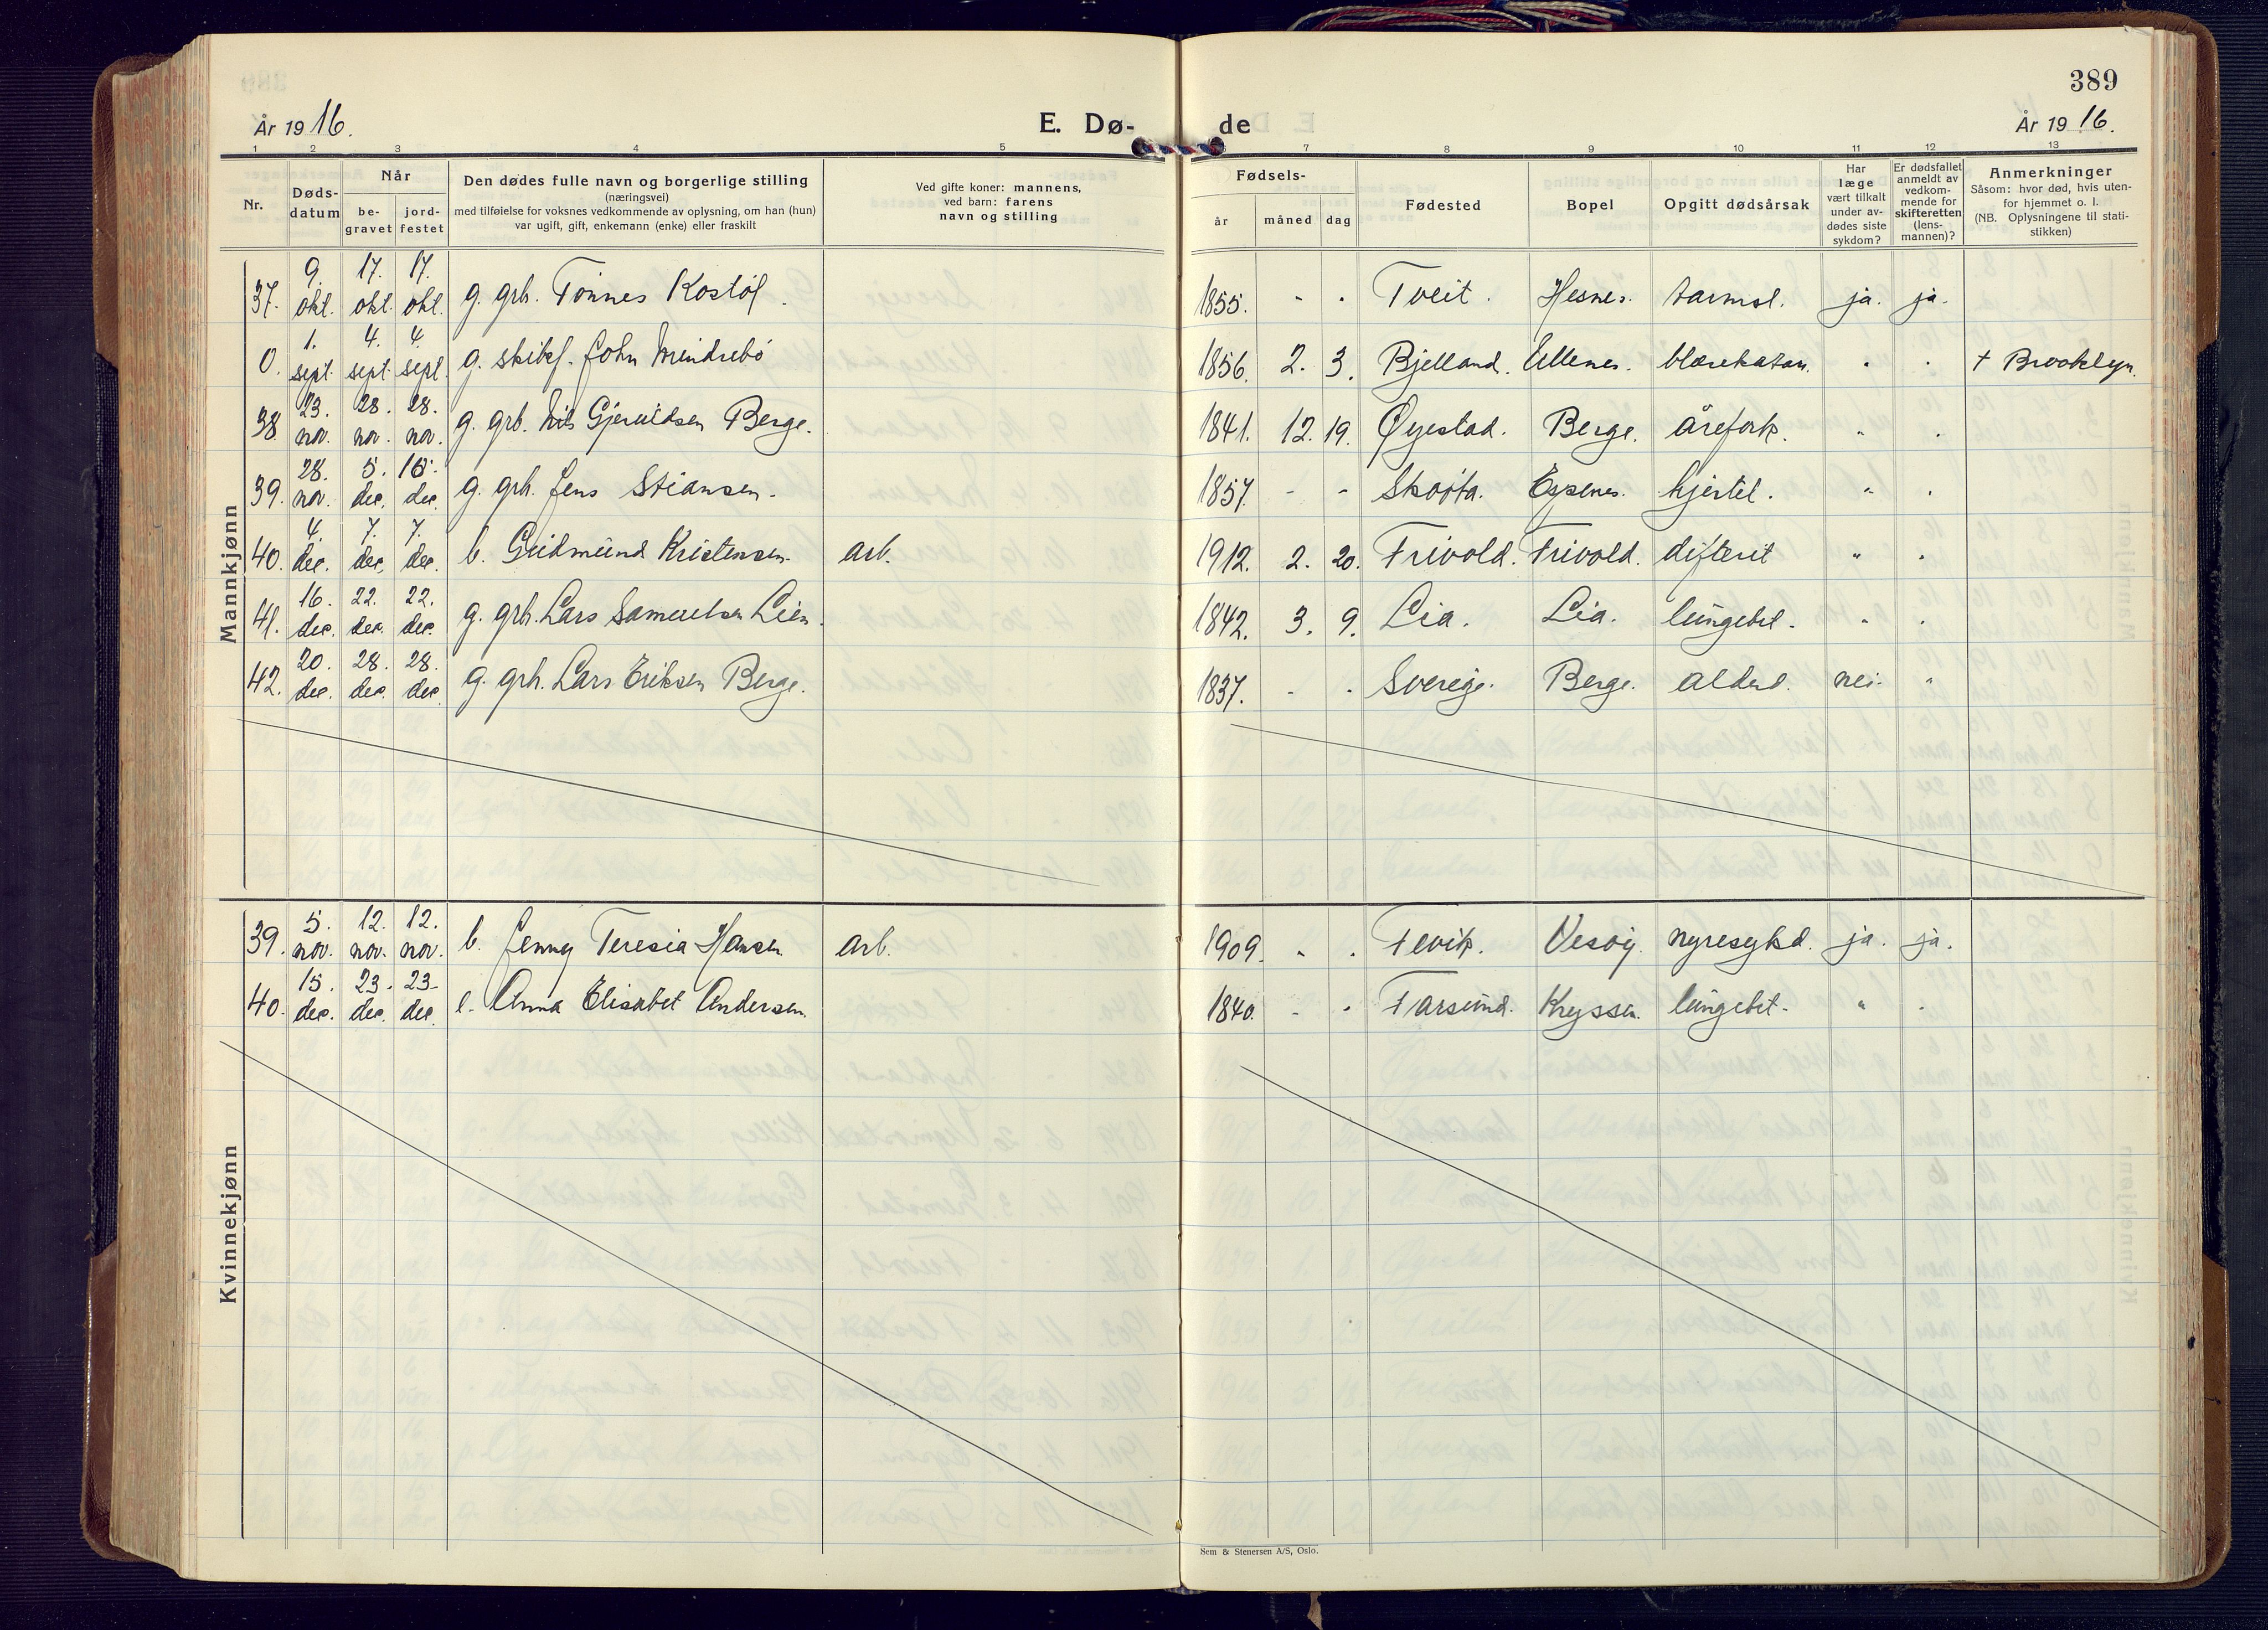 389
År 1916.
E. Dø-
de
År 1916.
1 2 3 4 5
7 8 9 10 11 12 13
Nr.
Døds-
datum
Når
be-
gravet
jord-
festet
Den dødes fulle navn og borgerlige stilling
(næringsvei)
med tilføielse for voksnes vedkommende av oplysning, om han (hun)
var ugift, gift, enkemann (enke) eller fraskilt
Ved gifte koner: mannens,
ved barn: farens
navn og stilling
Fødsels-
år måned dag
Fødested
Bopel
Opgitt dødsårsak
Har
læge
vært tilkalt
under av-
dødes siste
sykdom?
Er dødsfallet
anmeldt av
vedkom-
mende for
skifteretten
(lens-
mannen)?
Anmerkninger
Såsom: hvor død, hvis uten-
for hjemmet o. l.
(NB. Oplysningene til stati-
stikken)
Mannkjønn
37. 9. okt. 17. okt. 17. okt. g. grb. Tønnes Kostøl. 1855. - - Tveit. Hesnes. tarmsl. ja. ja.
0. 1. sept. 4. sept. 4. sept. g. skibsf. John Meindrebø 1856. 2. 3. Bjelland. Ullenes. blærekatarr. " " † Brooklyn.
38. 23. nov. 28. nov. 28. nov. g. grb. Nils Gjeruldsen Berge. 1841. 12. 19. Øyestad. Berge. årefork. " "
39. 28. nov. 5. dec. dec. g. grb. Jens Stiansen. 1857. - - Espenes. hjertel. " "
40. 4. dec. 7. dec. 7. dec. b. Gudmund Kristensen. arb. 1912. 2. 20. Frivold. Frivold. difterit " "
41. 16. dec. 22. dec. 22. dec. g. grb. Lars Samuelsen Lien. 1842. 3. 9. Lia. Lia. lungebet. " "
42. 20. dec. 28. dec. 28. dec. g. grb. Lars Eriksen Berge. 1837. - - Sverige. Berge. alderd. nei. "
Kvinnekjønn
39. 5. nov. 12. nov. 12. nov. b. Jenny Teresia Hansen arb. 1909. - - Fevik. Vesøy. nyresykd. ja. ja.
40. 15. dec. 23. dec. 23. dec. e. Anna Elisabet Andersen. 1840. - - Farsund. Kryssen. lungebet. " "
Sem & Stenersen A/S, Oslo.